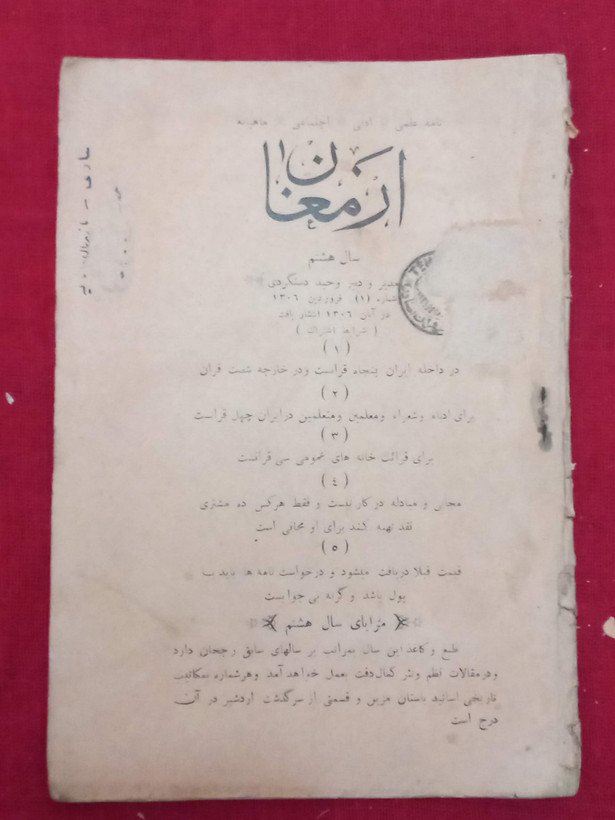 نامه علمی ادبی اجتماعی ماهیانه
ارمغان
سال هشتم
مدیر و دبیر وحید دستگردی
شماره (۱) فروردین ۱۳۰۶
در آبان ۱۳۰۶ انتشار یافت
( شرایط اشتراك )
( ۱ )
در داخله ایران پنجاه قرانست و در خارجه شصت قران
( ۲ )
برای ادباء و شعراء و معلمین و متعلمین در ایران چهل قرانست
( ۳ )
برای قرائت خانه های عمومی سی قرانست
( ٤ )
مجانی و مبادله در کار نیست و فقط هر کس ده مشتری
نقد تهیه کند برای او مجانی است
( ۵ )
قیمت قبلا دریافت میشود و درخواست نامه ها باید با
پول باشد و گرنه بی جوابست
مزایای سال هشتم
طبع و کاغذ این سال بمراتب بر سالهای سابق رجحان دارد
و در مقالات نظم و نثر کمال دقت بعمل خواهد آمد و هر شماره
تاریخی اساتید باستان مزین و قسمتی از سرگذشت اردشیر در آن
درج است